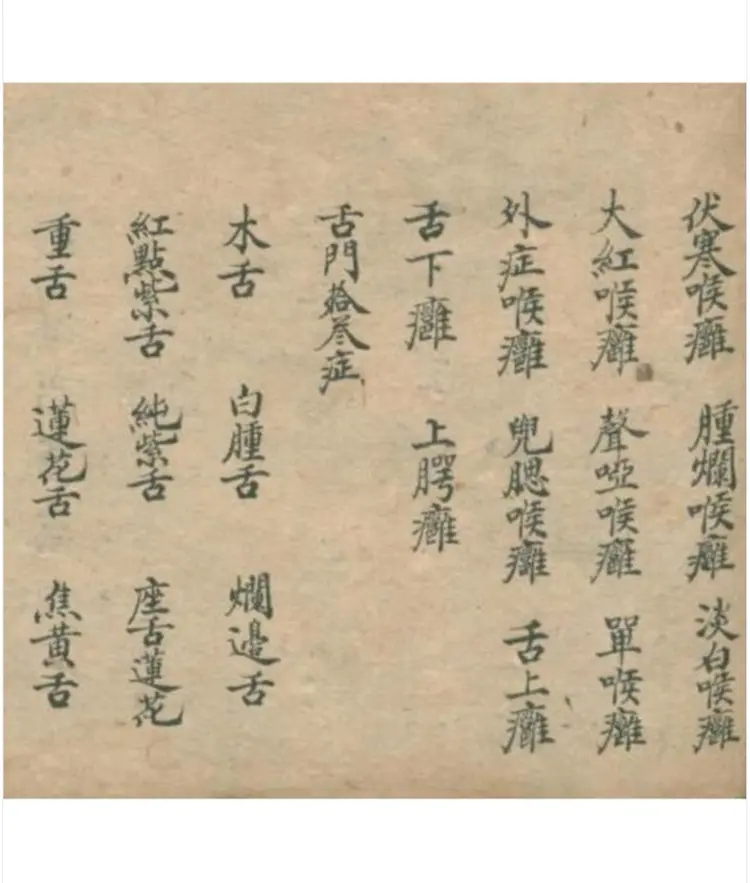 伏寒喉癰 腫爛喉癰 淡白喉癰
大紅喉癰 聲啞喉癰 單喉癰
外症喉癰 兜腮喉癰 舌上癰
舌下癰 上腭癰
舌門拾叁症
木舌 白腫舌 爛邉舌
紅點紫舌 純紫舌 座舌蓮花
重舌 蓮花舌 焦黃舌